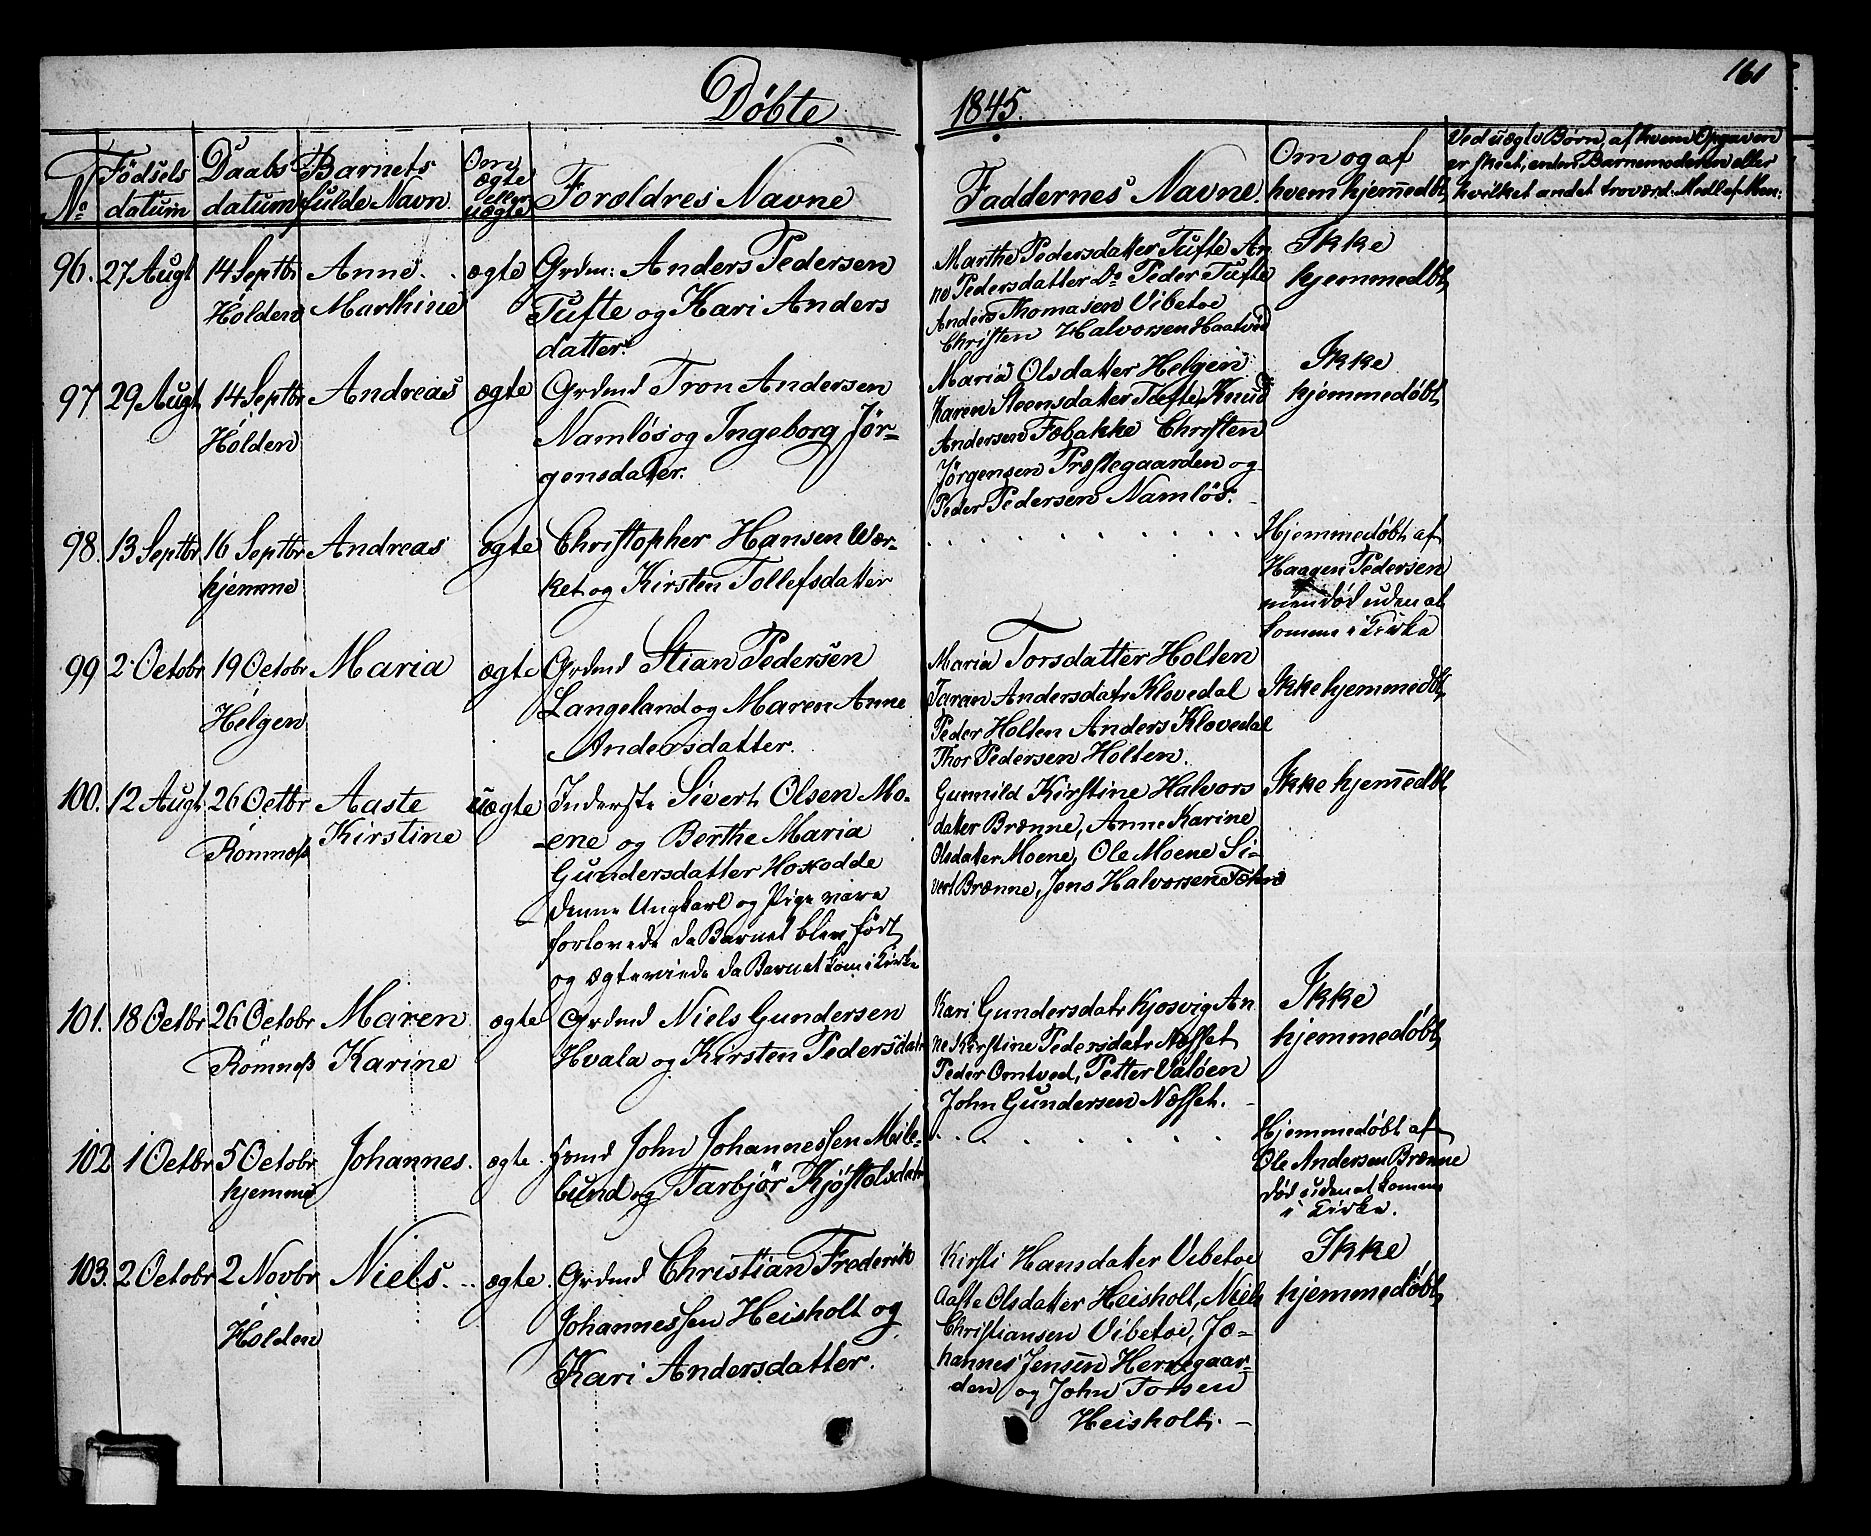 Døbte 1845.
161
No
Fødsels datum
Daabs datum
Barnets fulde Navn
Om ægte eller uægte
Forældres Navne
Faddernes Navne.
Om og af hvem hjemmedbt
Ved uægte Børn, af hvem Opgaven
er skeet, enten Barnemoderen eller
hvilket andet troværd: Middel f. Ex:
96. 27 Augt 14 Septbr Anne ægte Grdm: Anders Pedersen
Holden Marthine Tufte og Kari Anders
datter.
Marthe Pedersdatter Tufte An
ne Pedersdatter Do Peder Tufte
Anders Thomasen Vibetoe
Christen Halvorsen Haatved
Ikke
hjemmedbt
97 29 Augt 14 Septbr Andreas ægte Grdmd Tron Andersen
Holden Namløs og Ingeborg Jør-
gensdatter.
Maria Olsdatter Helgen
Karen Steensdatter Tufte, Knud
Andersen Fæbakke Christen
Jørgensen Præstegaarden og
Peder Pedersen Namløs.
Ikke
hjemmedøbt
98. 13 Septbr 16 Septbr Andreas ægte Christopher Hansen Vær-
hjemme ket og Kirsten Tollefsdatter
Hjemmedøbt af
Haagen Pedersen
men død uden at
komme i Kirke
99 2 Octobr 19 Octobr Maria ægte Grdmd Stian Pedersen
Helgen Langeland og Maren Anne
Andersdatter.
Maria Torsdatter Holten
Taran Andersdatr Klovedal
Peder Holten Anders Klovedal
Thor Pedersen Holten.
Ikke hjemmedbt
100. 12 Augt 26 Octbr Aaste uægte Inderste Sivert Olsen Mo-
Romnæs Kirstine ene og Berthe Maria
Gundersdatter Hoxodde
Denne Ungkarl og Pige vare
forlovede da Barnet blev født
og ægteviede da Barnet kom i Kirke
Gunnild Kirstine Halvors
datter Brænne, Anne Karine
Olsdatter Moene, Ole Moene Si-
vert Brænne, Jens Halvorsen
Ikke hjemedbt
101. 18 Octbr 26 Octobr Maren ægte Grdmd Niels Gundersen
Romnæs Karine Hvala og Kirsten Pedersdatr
Kari Gundersdatr Kjosvig An
ne Kirstine Pedersdatr Næsset
Peder Omtved, Petter Valøen
John Gundersen Næsset.
Ikke
hjemmedøbt
102 1 Octbr 5 Octobr Johannes. ægte. Hsmd John Johannessen Mile-
hjemme bund og Tarbjør Kjøstolsdatr
Hjemmedøbt af
Ole Andersen Brænne
død uden at komme
i Kirke.
103. 2 Octobr 2 Novbr Niels. ægte. Grdmd Christian Frederik
Holden Johannessen Heisholt og
Kari Andersdatter.
Kirsti Hansdatter Vibetoe
Aaste Olsdatter Heisholt, Niels
Christiansen Vibetoe, Jo-
hannes Jensen Herregaar-
den og John Torsen
Heisholt.
Ikke
hjemmedøbt